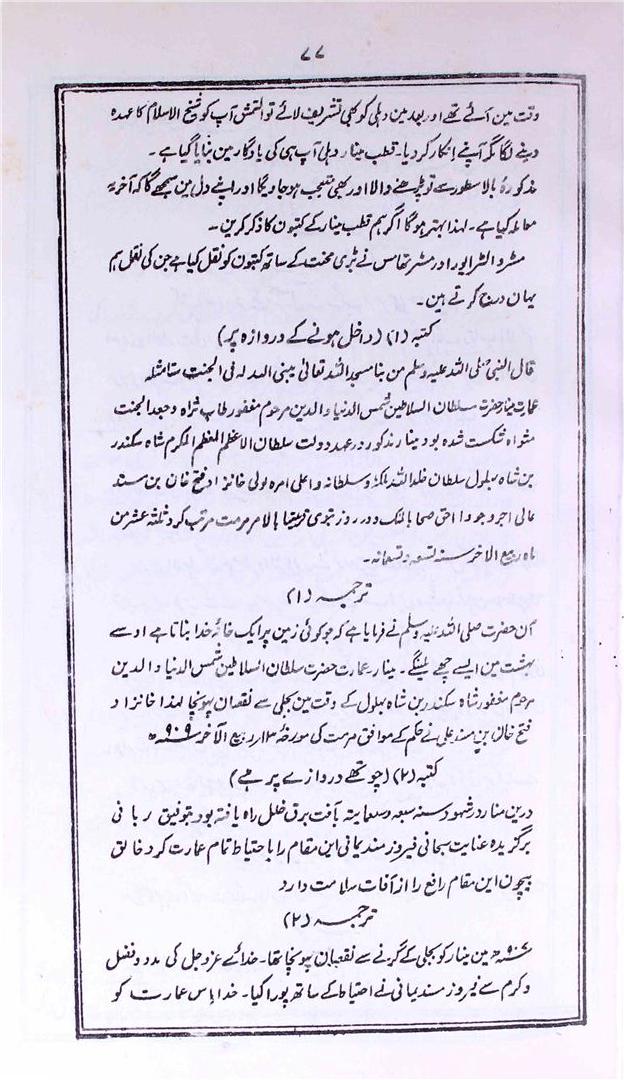 ۷۷
وقت مین آئے تھے اور بعد مین دہلی کو بھی تشریف لائے تو التمش آپ کو شیخ الاسلام کا عہدہ
دینے لگا مگر آپنے انکار کر دیا۔ قطب مینار دہلی آپ ہی کی یادگار مین بنایا گیا ہے۔
مذکورۂ بالا سطور سے تو پڑھنے والا اور بھی متعجب ہو جاویگا اور اپنے دل مین سمجھے گا کہ آخر یہ
معاملہ کیا ہے۔ لہذا بہتر ہوگا اگر ہم قطب مینار کے کتبون کا ذکر کرین۔
مسٹر والٹر ایور اور مسٹر تھامس نے بڑی محنت کے ساتھ کتبون کو نقل کیا ہے جن کی نقل ہم
یہان درج کرتے ہین۔
کتبہ (۱) (داخل ہونے کے دروازہ پر)
قال النبی صلی اللہ علیہ وسلم من بنا مسجد اللہ تعالیٰ یبنی اللہ لہ فی الجنت سا مثلہ
عمارت مینار حضرت سلطان السلاطین شمس الدنیا والدین مرحوم مغفور طاب ثراہ وجعد الجنت
مثواہ شکست شدہ بود مینار مذکور در عہد دولت سلطان الاعظم المعظم المکرم شاہ سکندر
بن شاہ بہلول سلطان خلد اللہ ملکہ وسلطانہ واعلی امرہ ولی خانزادہ فتح خان بن مسند
عالی
ماہ ربیع الاخر سنہ تسعہ وتسمانہ۔
ترجمہ (۱)
آن حضرت صلی اللہ علیہ وسلم نے فرمایا ہے کہ جو کوئی زمین پر ایک خانۂ خدا بناتا ہے اوسے
بہشت مین ایسے چھے ملینگے۔ مینار عمارت حضرت سلطان السلاطین شمس الدنیا والدین
مرحوم مغفور شاہ سکندر بن شاہ بہلول کے وقت مین بجلی سے نقصان پہونچا لہذا خانزاد
فتح خان بن مسند علی نے حکم کے موافق مرمت کی مورخہ ۱۳ ربیع الآخر سنہ ۹۰۹ھ
کتبہ (۲) (چوتھے دروازے پر ہے)
درین منار در شہود سنہ سبعہ وسعمایتہ بآفت برق خلل راہ یافتہ بود بتوفیق ربانی
برگزیدہ عنایت سبحانی فیروز سندیمانی این مقام را باحتیاط تمام عمارت کرد خالق
بیچون این مقام رافع را از آفات سلامت دارد
ترجمہ (۲)
سنہ ۹۰۷ھ مین مینار کو بجلی کے گرنے سے نقصان پہونچا تھا۔ خدائے عزوجل کی مدد وفضل
وکرم سے فیروز سندیمانی نے احتیاط کے ساتھ پورا کیا۔ خدا اس عمارت کو